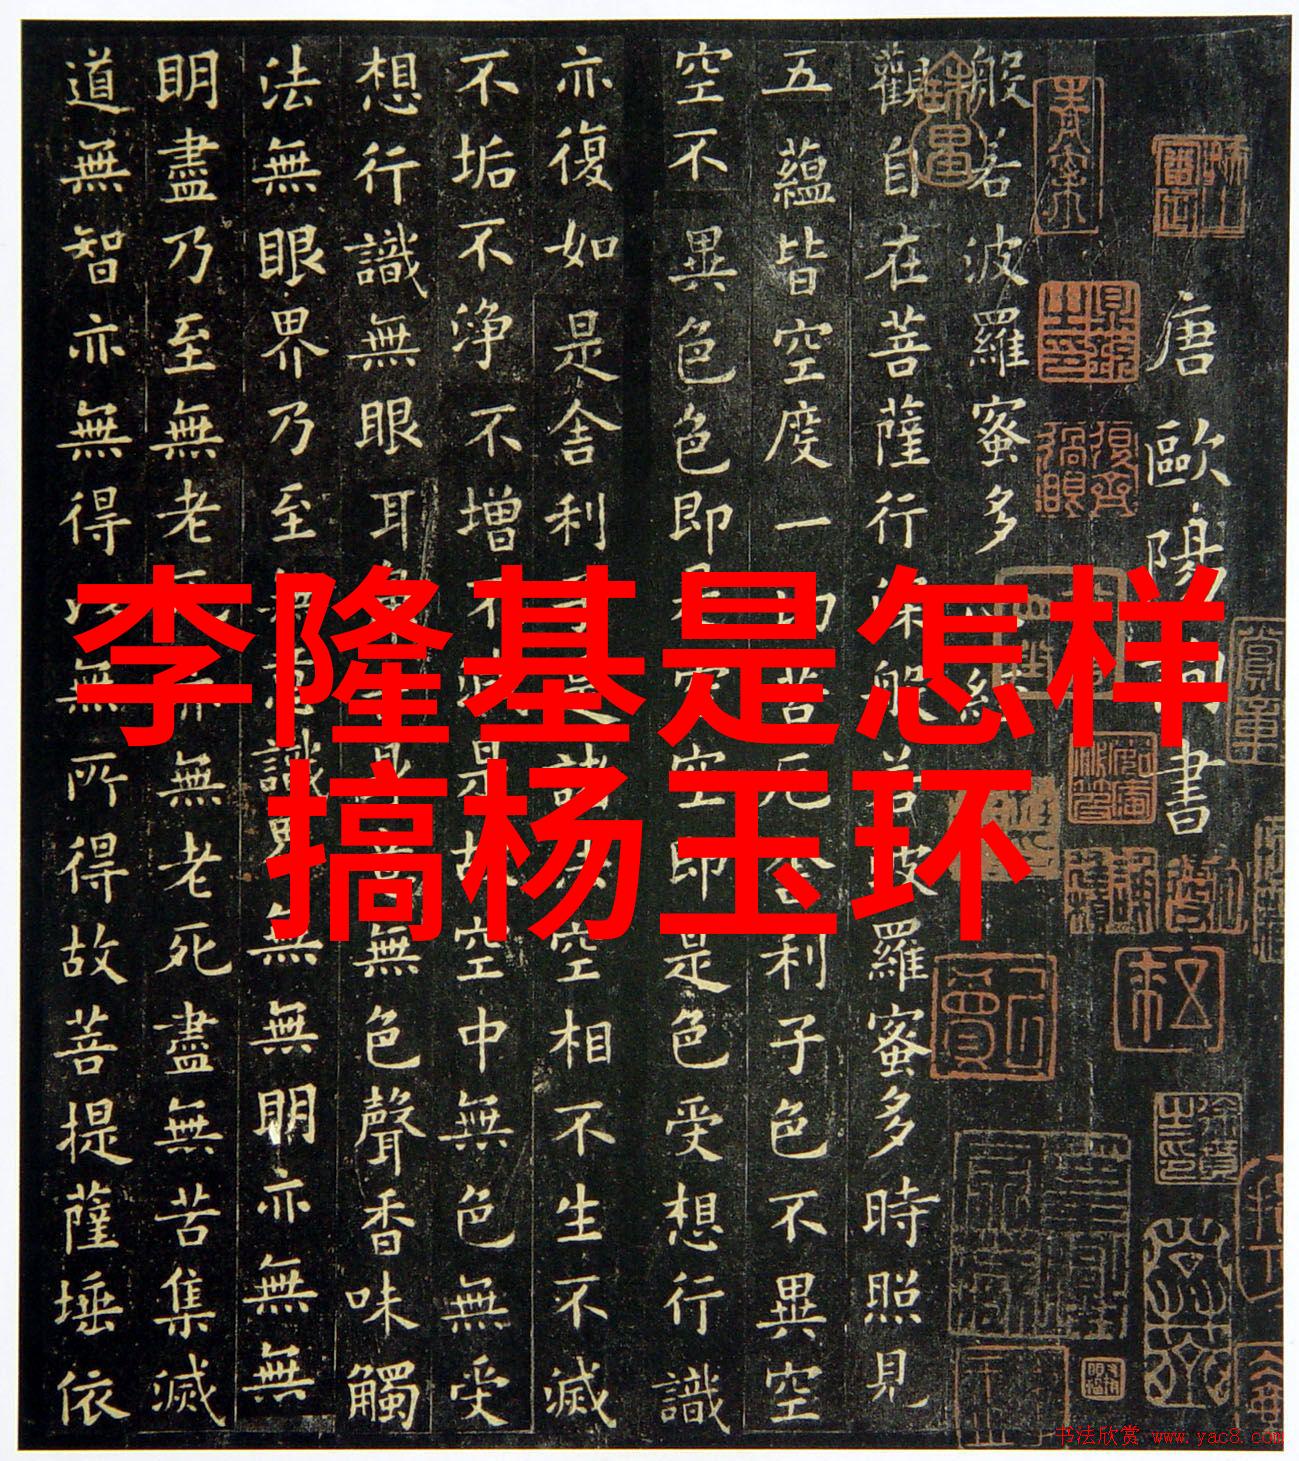 李隆基是怎样
搞杨玉环
唐歐陽詢書
般若波羅蜜多心經
觀自在菩薩行深般若波羅蜜多時照見
五蘊皆空度一切苦厄舍利子色不異空
空不異色色即是空空即是色受想行識
亦復如是舍利子是諸法空相不生不滅
不垢不淨不增不減是故空中無色無受
想行識無眼耳鼻舌身意無色聲香味觸
法無眼界乃至無意識界無無明亦無無
明盡乃至無老死亦無老死盡無苦集滅
道無智亦無得以無所得故菩提薩埵依
书法欣赏 www.yac8.com